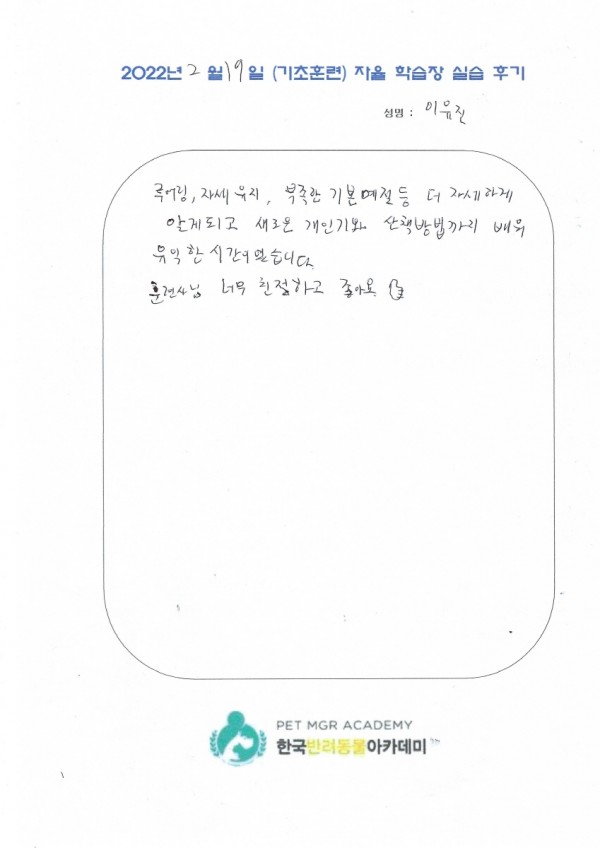 2022년 2 월 19 일 (기초훈련) 자율 학습장 실습 후기
성명 : 이유진
루어링, 자세 유지, 부족한 기본예절 등 더 자세하게
알게되고 새로운 개인기와 산책방법까지 배워
유익한 시간이었습니다.
훈련사님 너무 친절하고 좋아요
PET MGR ACADEMY
한국반려동물아카데미